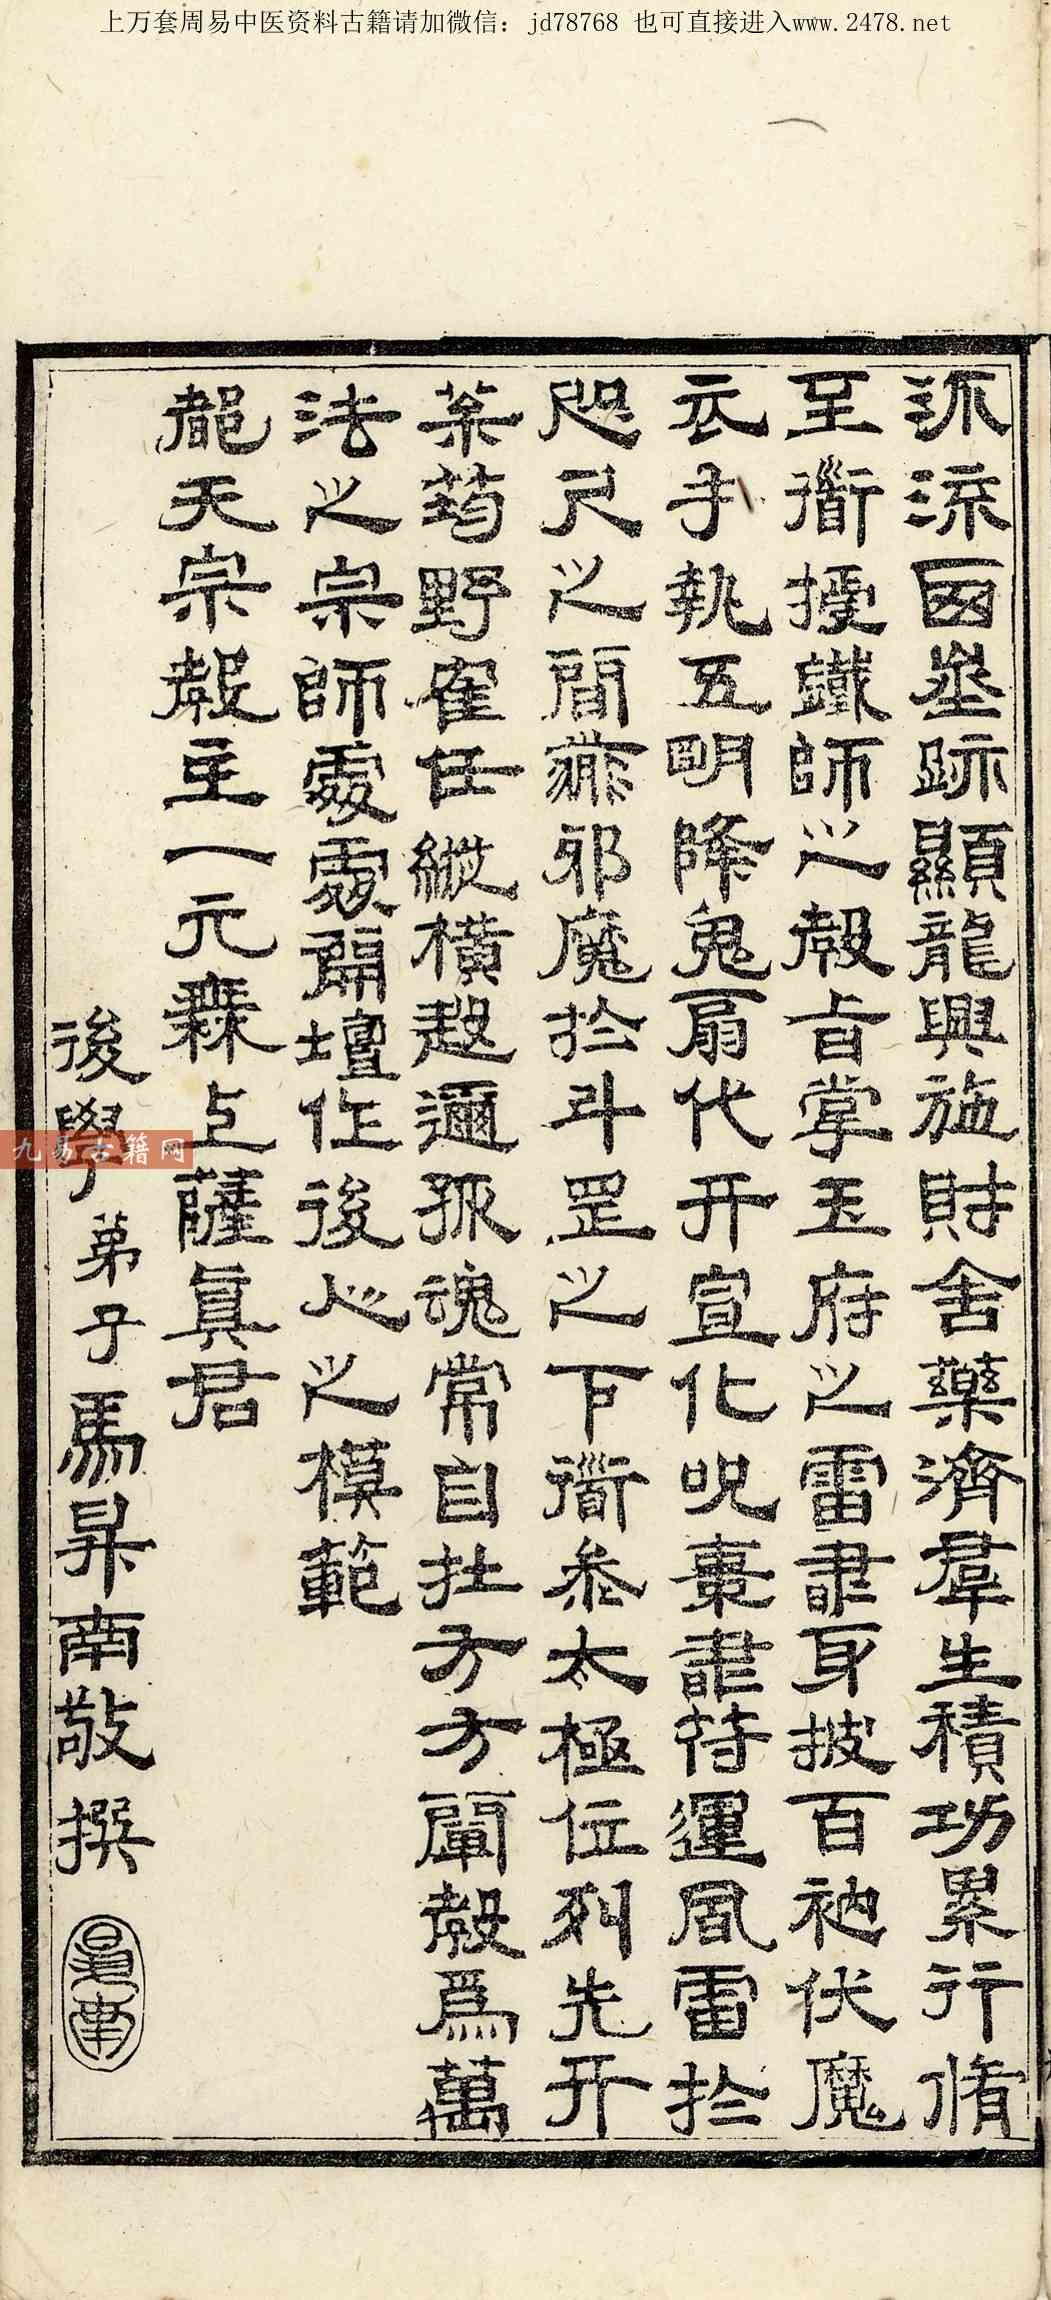 上万套周易中医资料古籍请加微信：jd78768 也可直接进入www.2478.net
派流西垂跡顯龍興施財舍藥濟羣生積功累行脩
至道授鐵師之教旨掌玉府之雷書身披百衲伏魔
衣手執五明降鬼扇代天宣化咒棗書符運風雷於
咫尺之間馘邪魔於斗罡之下道參太極位列先天
野隺任縱橫超邇孤魂常自在方方闡教爲萬
法之宗師處處開壇作後人之模範
都天宗教主一元無上薩眞君
後學弟子馬昇南敬撰
九易古籍网